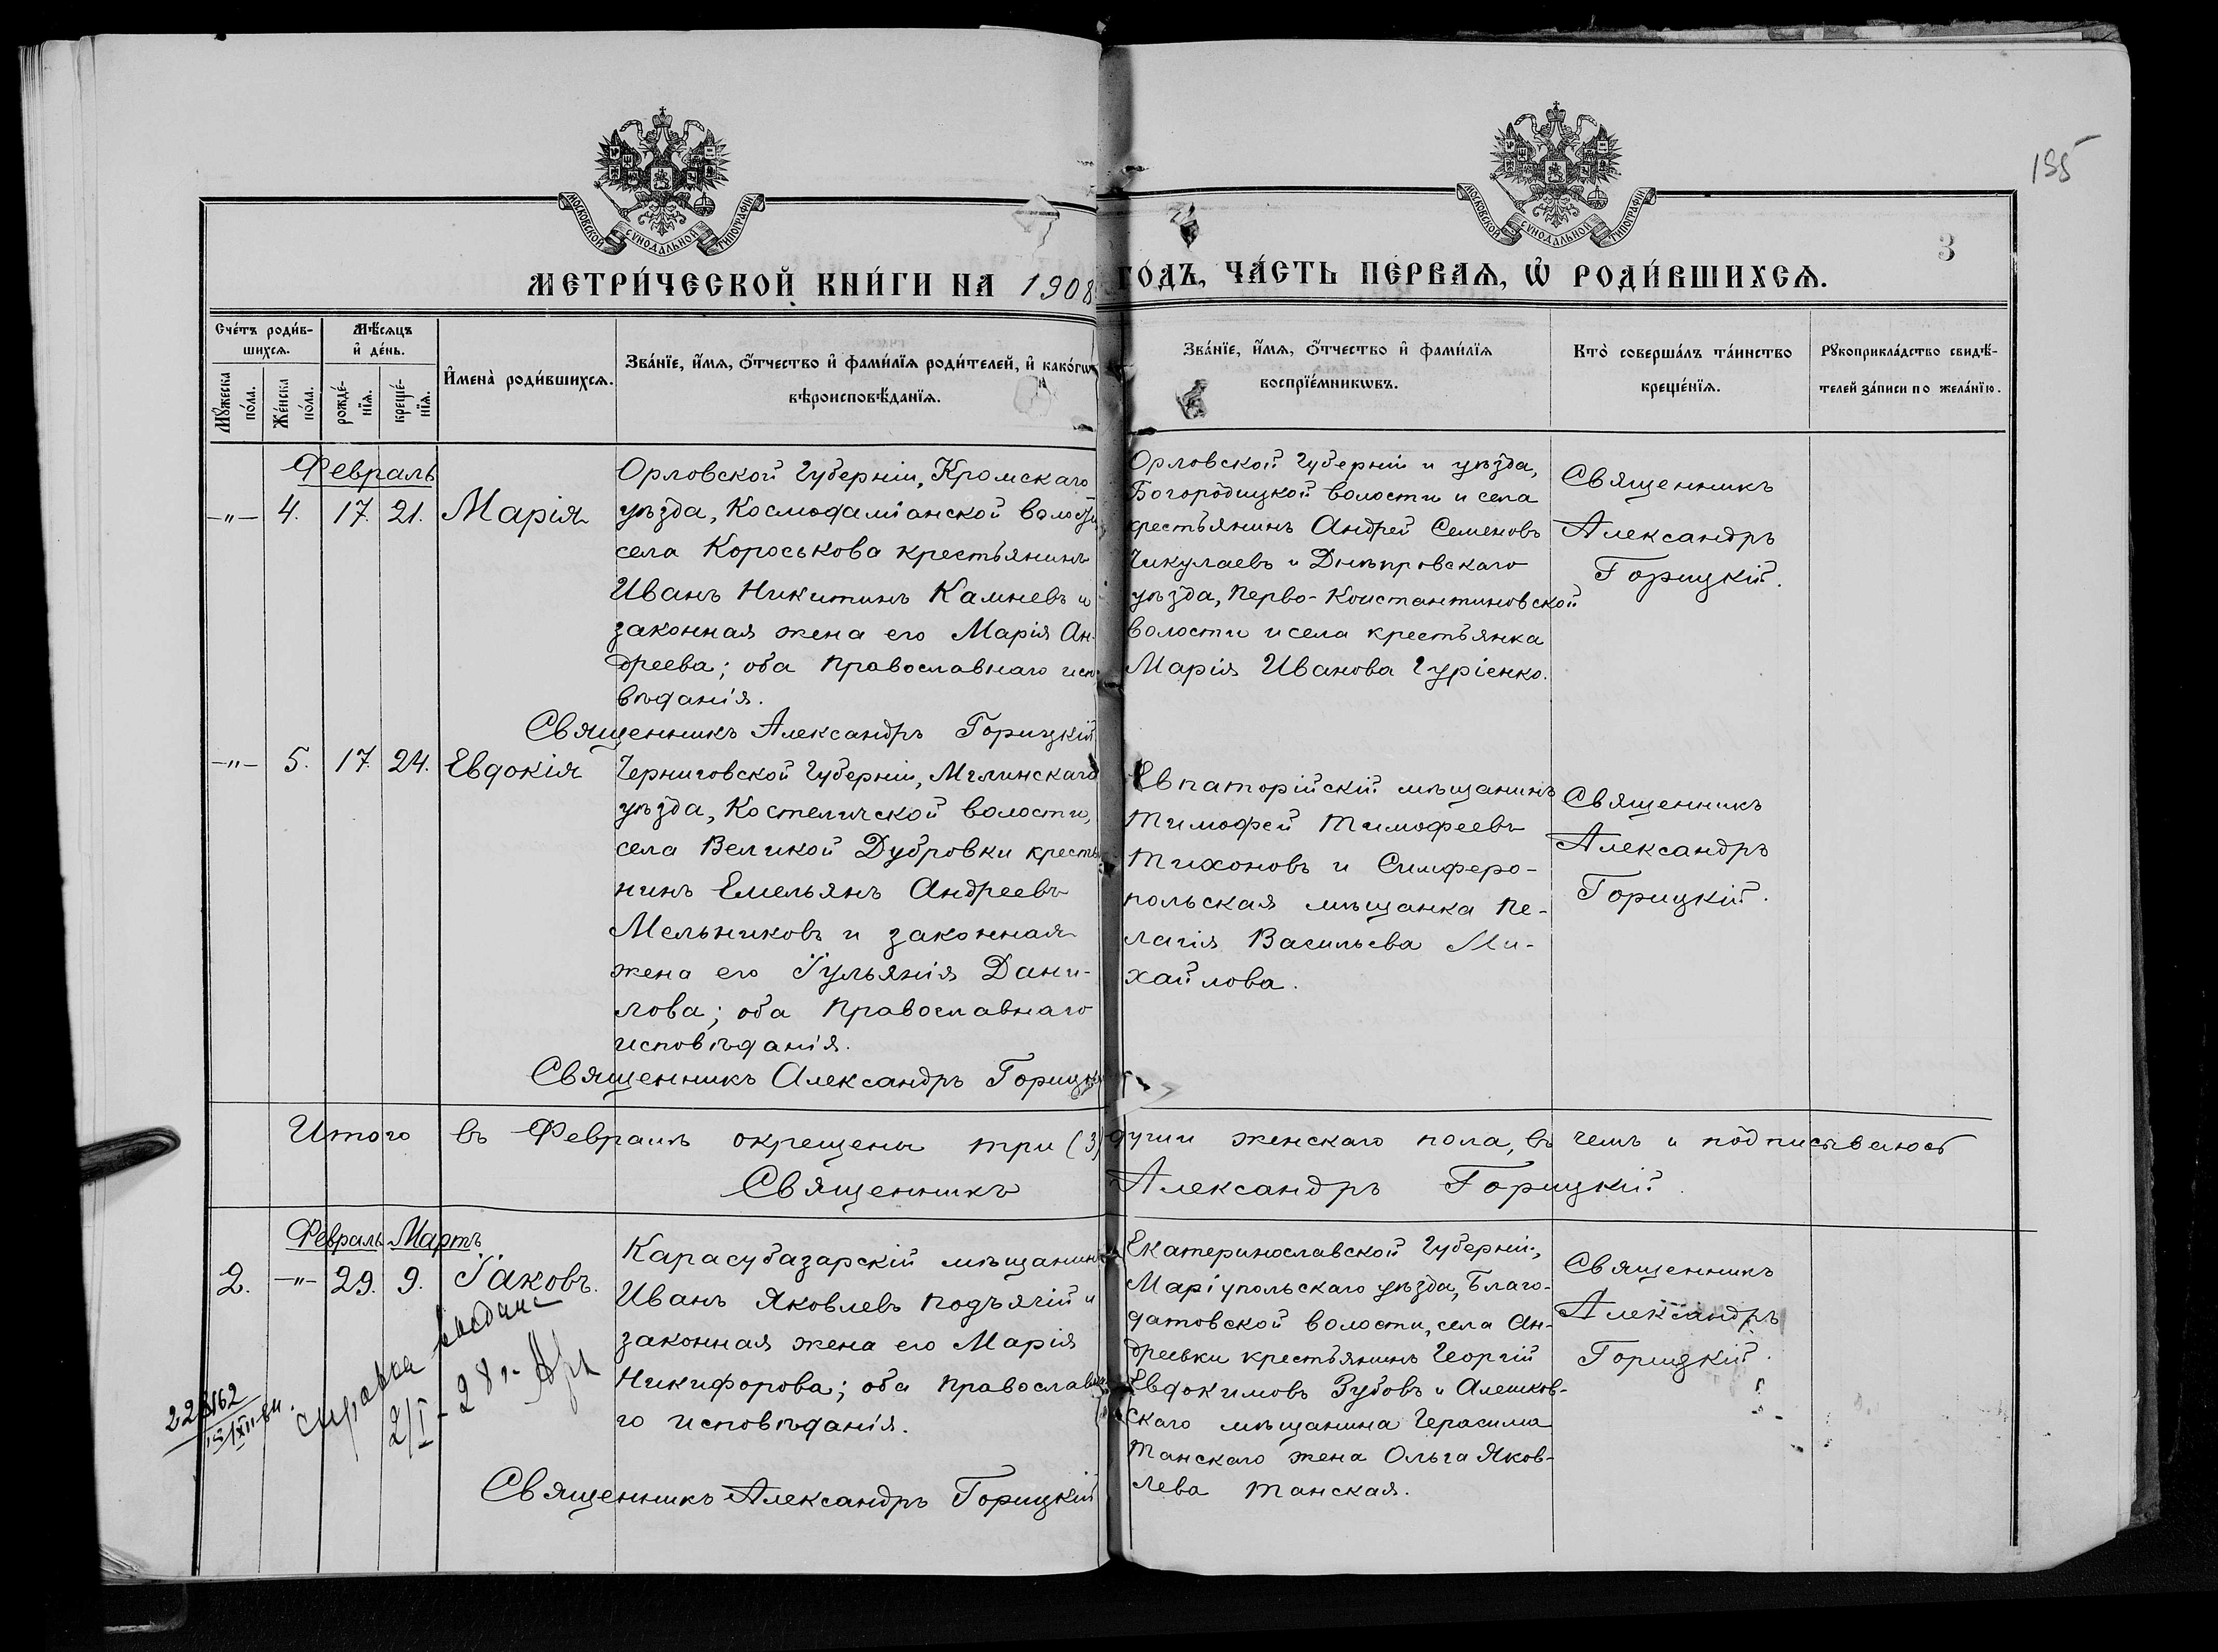 155
МОСКОВСКОЙ СУНОДАЛЬНОЙ ТИПОГРАФІИ
МОСКОВСКОЙ СУНОДАЛЬНОЙ ТИПОГРАФІИ
3
МЕТРИ́ЧЕСКОЙ КНИ́ГИ НА 1908 ГОДЪ, ЧА́СТЬ ПЕ́РВАѦ, Ѿ РОДИ́ВШИХСѦ.
Сче́тъ роди́в-
шихсѧ.
Мꙋ́жеска
по́ла.
Же́нска
по́ла.
Мѣ́сѧцъ
и҆ де́нь.
рожде́-
нїѧ.
креще́-
нїѧ.
И҆мена̀ роди́вшихсѧ.
Зва́нїе, и҆́мѧ, ѻ҆́тчество и҆ фами́лїѧ роди́телей, и҆ како́гѡ
вѣроисповѣ́данїѧ.
Зва́нїе, и҆́мѧ, ѻ҆́тчество и҆ фами́лїѧ
воспрїе́мникѡвъ.
Кто̀ соверша́лъ та́инство
креще́нїѧ.
Рꙋкоприкла́дство свидѣ́-
телей за́писи по жела́нїю.
Февраль
-"- 4. 17. 21. Марія
Орловской Губерніи, Кромскаго
уѣзда, Космодаміанской волости,
села Короськова крестьянинъ
Иванъ Никитинъ Камневъ и
законная жена его Марія Ан-
дреева; оба Православнаго испо
вѣданія.
Священникъ Александръ Горицкій
Орловской Губерніи и уѣзда,
Богородицкой волости и села
крестьянинъ Андрей Семеновъ
Чикулаевъ и Днѣпровскаго
уѣзда, Перво-Константиновской
волости и села крестьянка
Марія Иванова Гуріенко.
Священникъ
Александръ
Горицкій.
-"- 5. 17. 24. Евдокія
Черниговской Губерніи, Мглинскаго
уѣзда, Костеличской волости,
села Великой Дубровки кресть
нинъ Емельянъ Андреевъ
Мельниковъ и законная
жена его Іульянія Дани-
лова; оба Православнаго
исповѣданія.
Священникъ Александръ Горицкій
Евпаторійскій мѣщанинъ
Тимофей Тимофеевъ
Тихоновъ и Симферо-
польская мѣщанка Пе-
лагія Васильева Ми-
хайлова.
Священникъ
Александръ
Горицкій.
Итого въ Февралѣ окрещены три (3) души женскаго пола, въ чемъ и подписываюсь
Священникъ Александръ Горицкій.
Февраль Мартъ
2. -"- 29. 9. Іаковъ.
Карасубазарскій мѣщанинъ
Иванъ Яковлевъ Подъячій и
законная жена его Марія
Никифорова; оба Православна
го исповѣданія.
Священникъ Александръ Горицкій
Екатеринославской Губерніи,
Маріупольскаго уѣзда, Благо-
датовской волости, села Ан-
дреевки крестьянинъ Георгій
Евдокимовъ Зубовъ и Алешков-
скаго мѣщанина Герасима
Танскаго жена Ольга Яков-
лева Танская.
Священникъ
Александръ
Горицкій.
справка выдана
2/I - 28 г.